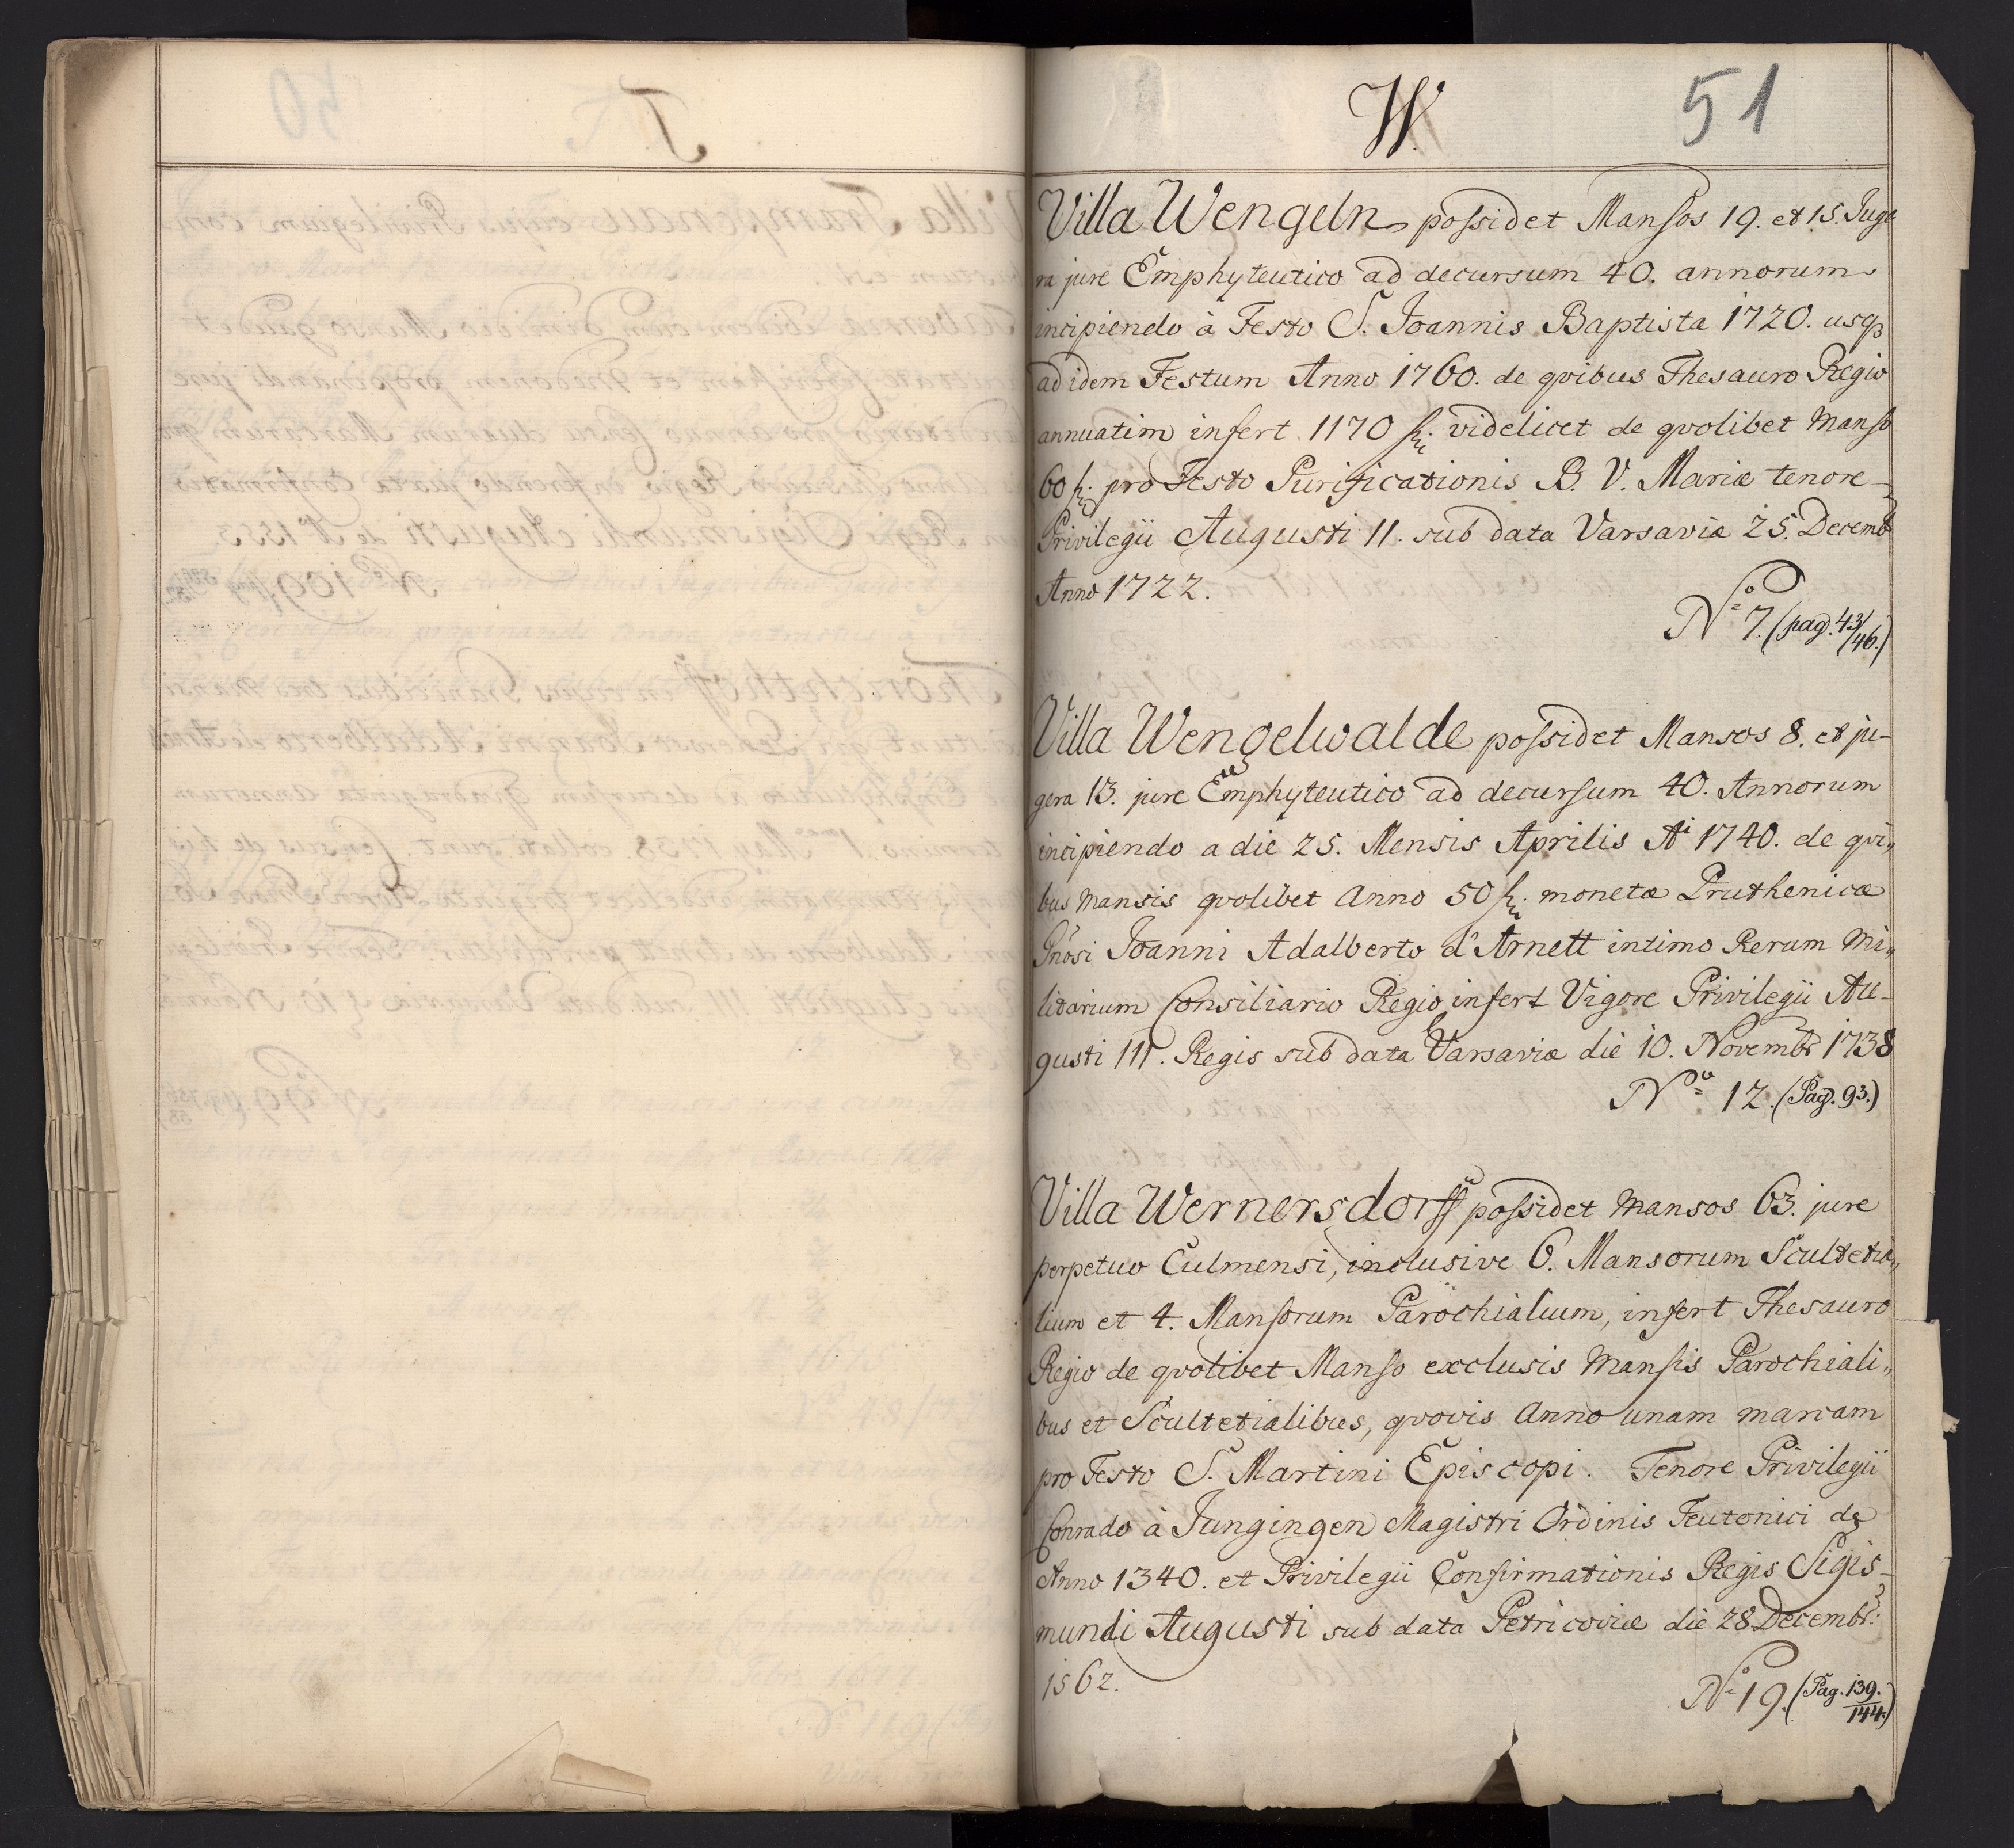 T.
W.
51
Villa Wengeln possidet Mansos 19. et 15. Juge
ra jure Emphyteutico ad decursum 40. annorum
incipiendo à Festo S. Joannis Baptista 1720. usqз
ad idem Festum Anno 1760. de qvibus Thesauro Regio
annuatim infert 1170 videlicet de qvolibet Manso
60 pro Festo Purificationis B. V. Mariæ tenore
Privilegii Augusti II. sub data Varsaviæ 25. Decemb
Anno 1722.
No 7. (pag. 43/46.)
Villa Wengelwalde possidet Mansos 8. et ju-
gera 13. jure Emphyteutico ad decursum 40. Annorum
incipiendo a die 25. Mensis Aprilis Ai 1740. de qvi„
bus Mansis qvolibet Anno 50 monetæ Pruthenicæ
Gnosi Joanni Adalberto d'Arnett intimo Rerum Mi„
litarium Consiliario Regio infert Vigore Privilegii Au-
gusti III. Regis sub data Varsaviæ die 10. Novembr 1738
No 12. (Pag. 93.)
Villa Wernersdorff possidet Mansos 63. jure
perpetuo Culmensi, inclusive 6. Mansorum Scultetia„
lium et 4. Mansorum Parochialium, infert Thesauro
Regio de qvolibet Manso exclusis Mansis Parochiali„
bus et Scultetialibus, qvovis Anno unam marcam
pro Festo S. Martini Episcopi. Tenore Privilegii
Conrado à Jungingen Magistri Ordinis Teutonici de
Anno 1340. et Privilegii Confirmationis Regis Sigis-
mundi Augusti sub data Petricoviæ die 28. Decembr:
1562.
No 19. (Pag. 139./144.)